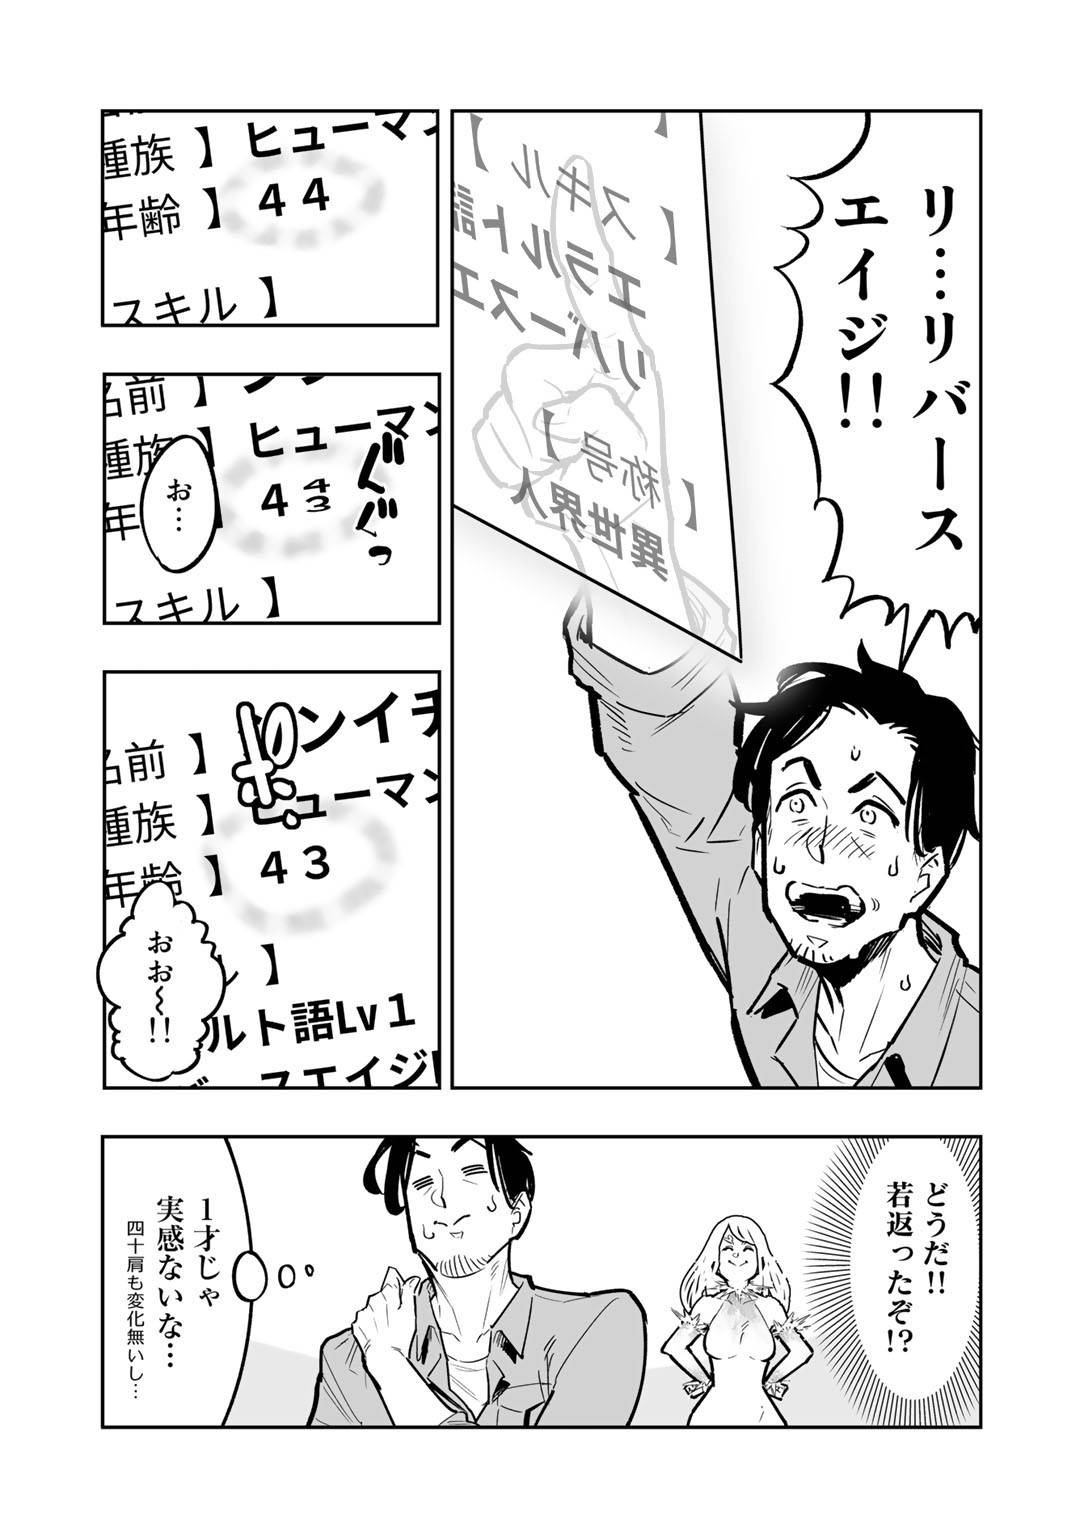 リ…リバース
エイジ!!
【スキル】
エラルト語
リバースエ
【称号】
異世界人
種族】ヒューマン
年齢】44
スキル】
名前】
種族】ヒューマン
年】4 4 3
スキル】
ぐぐぐっ
お…
ンイチ
名前】
種族】ヒューマン
年齢】43
ル】
ルト語Lv1
スエイジ
ポ
おお～!!
どうだ!!
若返ったぞ!?
1才じゃ
実感ないな…
四十肩も変化無いし…